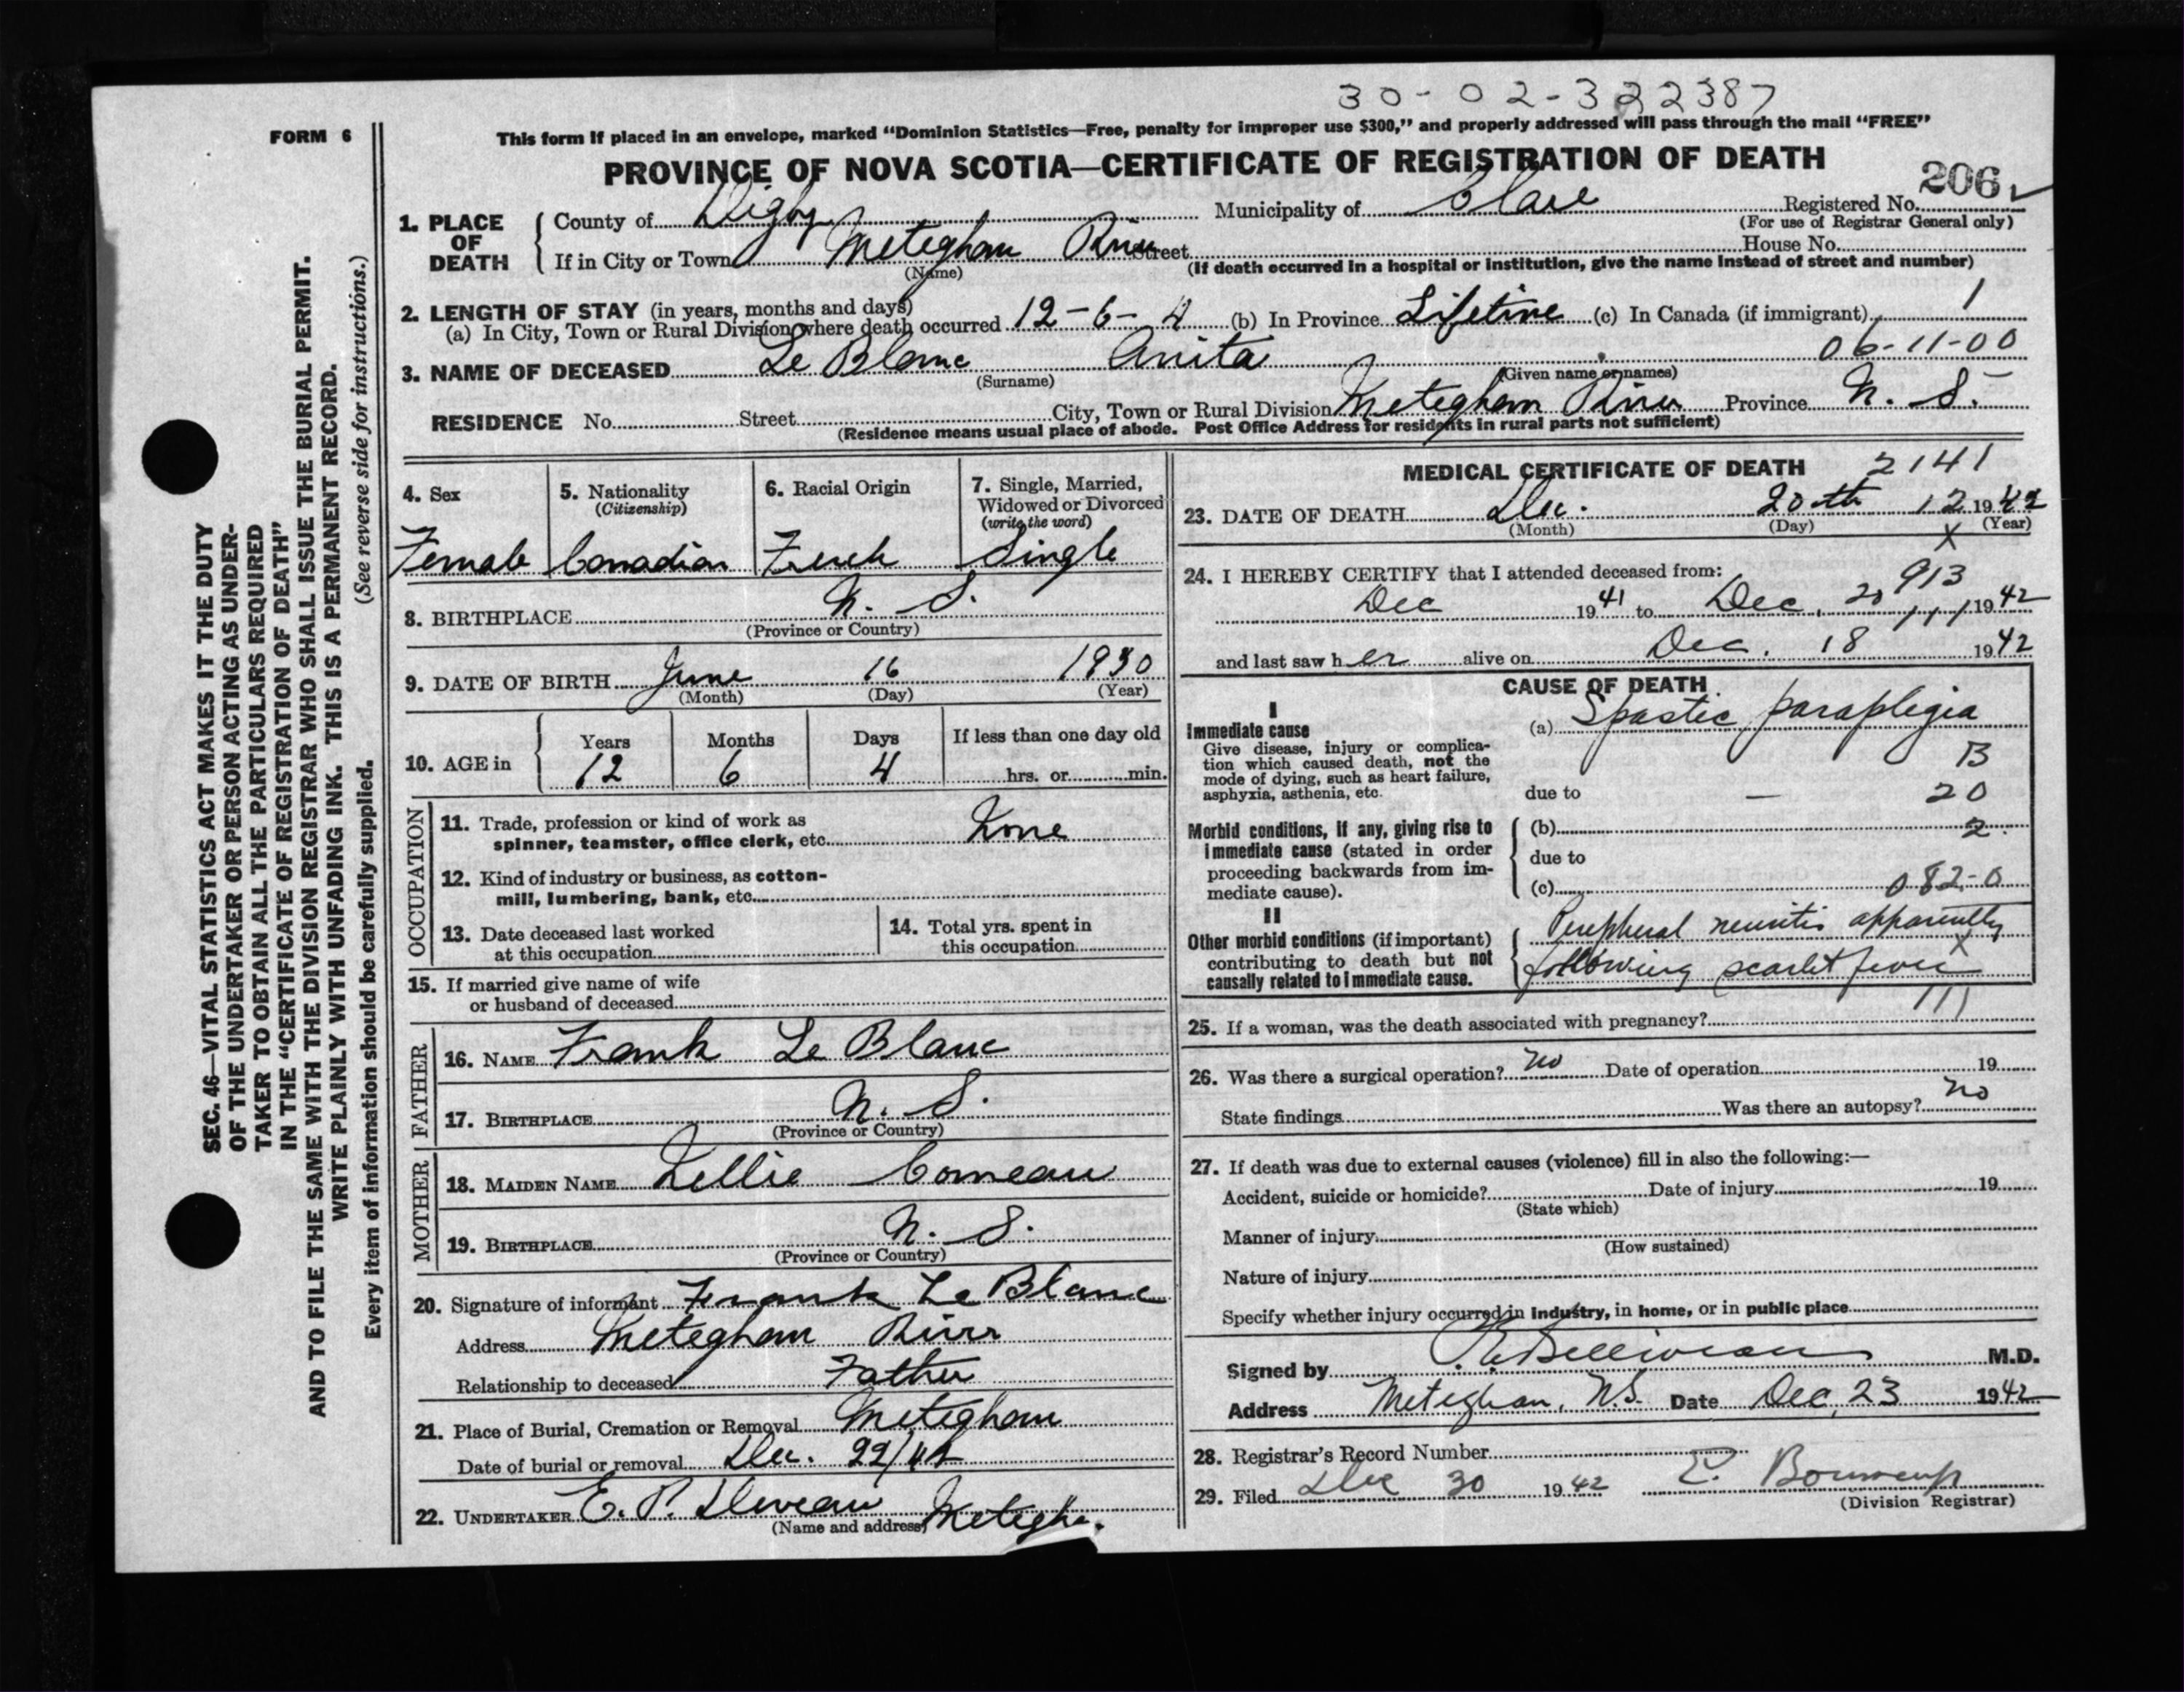 30-02-322387
FORM 6
This form if placed in an envelope, marked “Dominion Statistics—Free, penalty for improper use $300,” and properly addressed will pass through the mail “FREE”
PROVINCE OF NOVA SCOTIA—CERTIFICATE OF REGISTRATION OF DEATH
206
1. PLACE OF DEATH
County of Digby Municipality of Clare Registered No.
(For use of Registrar General only)
If in City or Town Meteghan River Street House No.
(Name) (If death occurred in a hospital or institution, give the name instead of street and number)
2. LENGTH OF STAY (in years, months and days)
(a) In City, Town or Rural Division where death occurred 12-6-4 (b) In Province Lifetime (c) In Canada (if immigrant) 1
06-11-00
3. NAME OF DECEASED Le Blanc Anita
(Surname) (Given name or names)
RESIDENCE No. Street City, Town or Rural Division Meteghan River Province N. S.
(Residence means usual place of abode. Post Office Address for residents in rural parts not sufficient)
4. Sex
Female
5. Nationality
(Citizenship)
Canadian
6. Racial Origin
French
7. Single, Married,
Widowed or Divorced
(write the word)
Single
8. BIRTHPLACE N. S.
(Province or Country)
9. DATE OF BIRTH June 16 1930
(Month) (Day) (Year)
10. AGE in
Years Months Days If less than one day old
12 6 4 hrs. or min.
OCCUPATION
11. Trade, profession or kind of work as
spinner, teamster, office clerk, etc. None
12. Kind of industry or business, as cotton-
mill, lumbering, bank, etc.
13. Date deceased last worked
at this occupation
14. Total yrs. spent in
this occupation
15. If married give name of wife
or husband of deceased
FATHER
16. NAME Frank Le Blanc
17. BIRTHPLACE N. S.
(Province or Country)
MOTHER
18. MAIDEN NAME Lellie Comeau
19. BIRTHPLACE N. S.
(Province or Country)
20. Signature of informant Frank Le Blanc
Address Meteghan River
Relationship to deceased Father
21. Place of Burial, Cremation or Removal Meteghan
Date of burial or removal Dec. 22/42
22. UNDERTAKER E. P. Deveau
(Name and address)
MEDICAL CERTIFICATE OF DEATH 2141
23. DATE OF DEATH Dec. 20th 12 1942
(Month) (Day) (Year)
X
24. I HEREBY CERTIFY that I attended deceased from: 913
Dec 1941 to Dec. 20 1942
and last saw her alive on Dec. 18 1942
CAUSE OF DEATH
I
Immediate cause
Give disease, injury or complica-
tion which caused death, not the
mode of dying, such as heart failure,
asphyxia, asthenia, etc.
(a) Spastic paraplegia
B
due to — 20
Morbid conditions, if any, giving rise to
immediate cause (stated in order
proceeding backwards from im-
mediate cause).
(b) 2
due to
(c) 082-0
II
Other morbid conditions (if important)
contributing to death but not
causally related to immediate cause.
Peripheral neuritis apparently
following scarlet fever
X
111
25. If a woman, was the death associated with pregnancy?
26. Was there a surgical operation? no Date of operation 19
State findings Was there an autopsy? no
27. If death was due to external causes (violence) fill in also the following:—
Accident, suicide or homicide? Date of injury 19
(State which)
Manner of injury
(How sustained)
Nature of injury
Specify whether injury occurred in industry, in home, or in public place
Signed by M.D.
Address Meteghan, N.S. Date Dec. 23 1942
28. Registrar's Record Number
29. Filed Dec 30 1942
(Division Registrar)
SEC. 46—VITAL STATISTICS ACT MAKES IT THE DUTY
OF THE UNDERTAKER OR PERSON ACTING AS UNDER-
TAKER TO OBTAIN ALL THE PARTICULARS REQUIRED
IN THE “CERTIFICATE OF REGISTRATION OF DEATH”
AND TO FILE THE SAME WITH THE DIVISION REGISTRAR WHO SHALL ISSUE THE BURIAL PERMIT.
WRITE PLAINLY WITH UNFADING INK. THIS IS A PERMANENT RECORD.
(See reverse side for instructions.)
Every item of information should be carefully supplied.